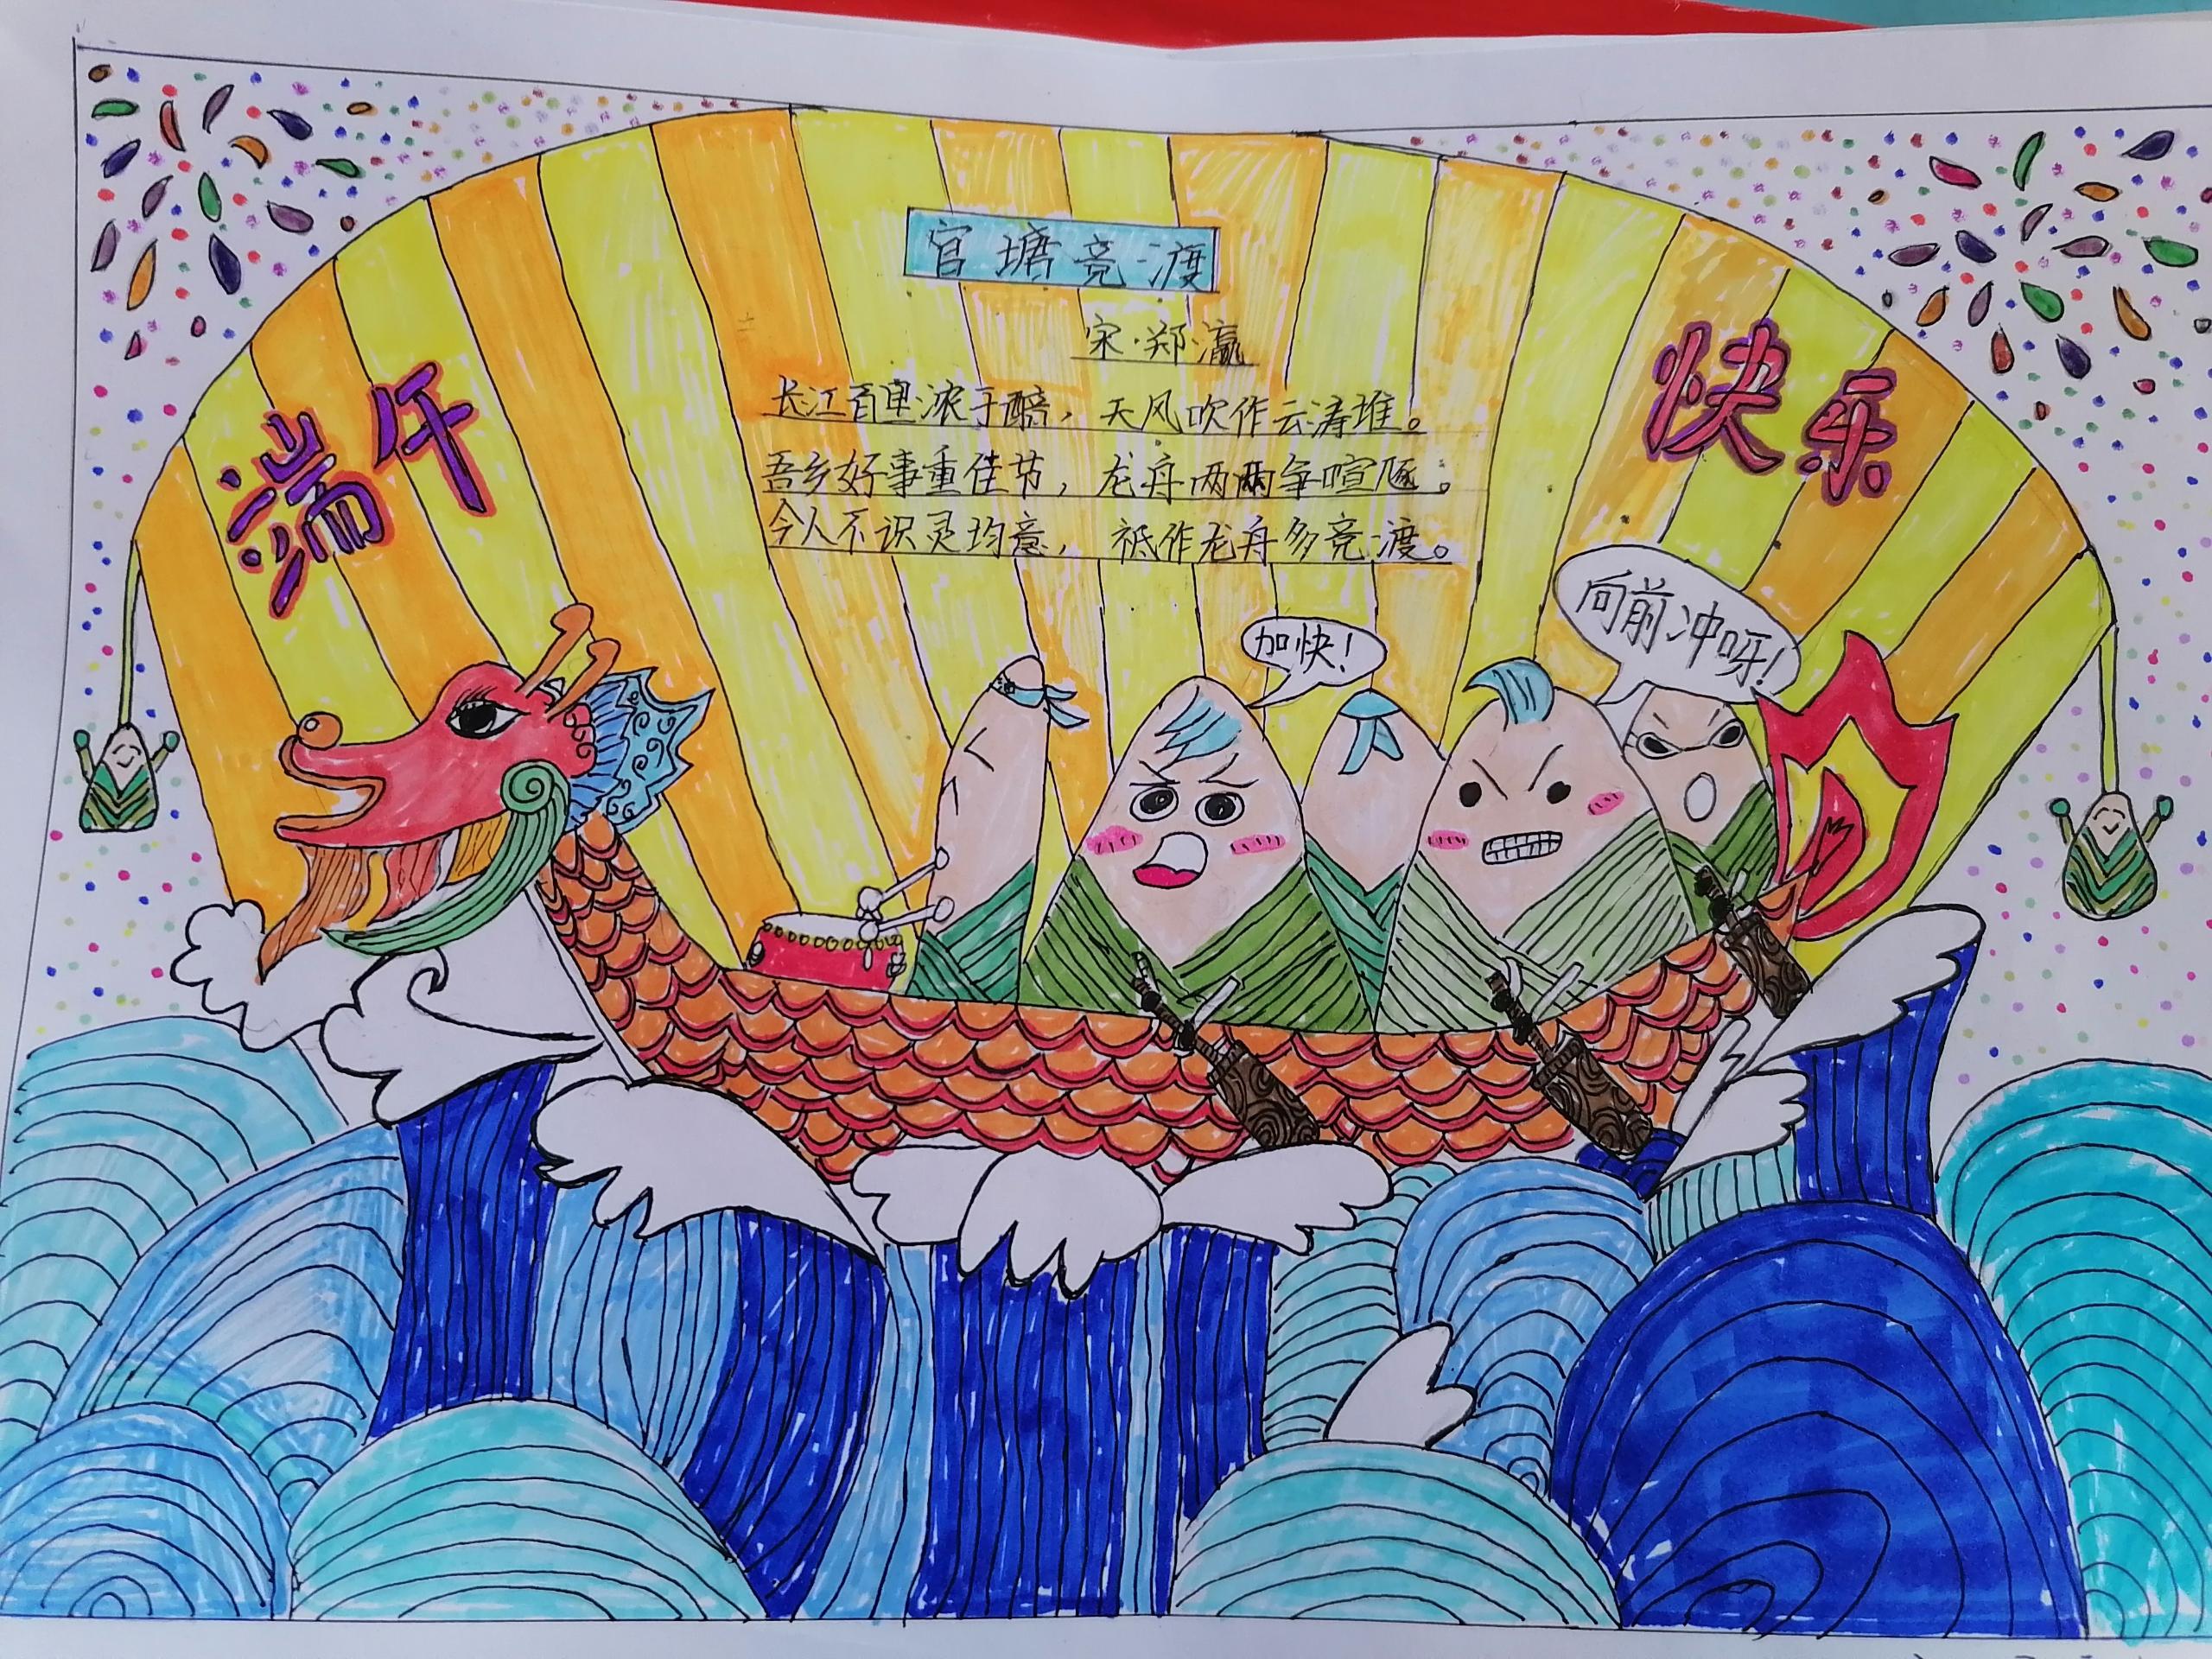 端午
快乐
官塘竞渡
宋·郑瀛
长江百里浓于醅，天风吹作云涛堆。
吾乡好事重佳节，龙舟两两争喧豗。
今人不识灵均意，祗作龙舟多竞渡。
加快！
向前冲呀！